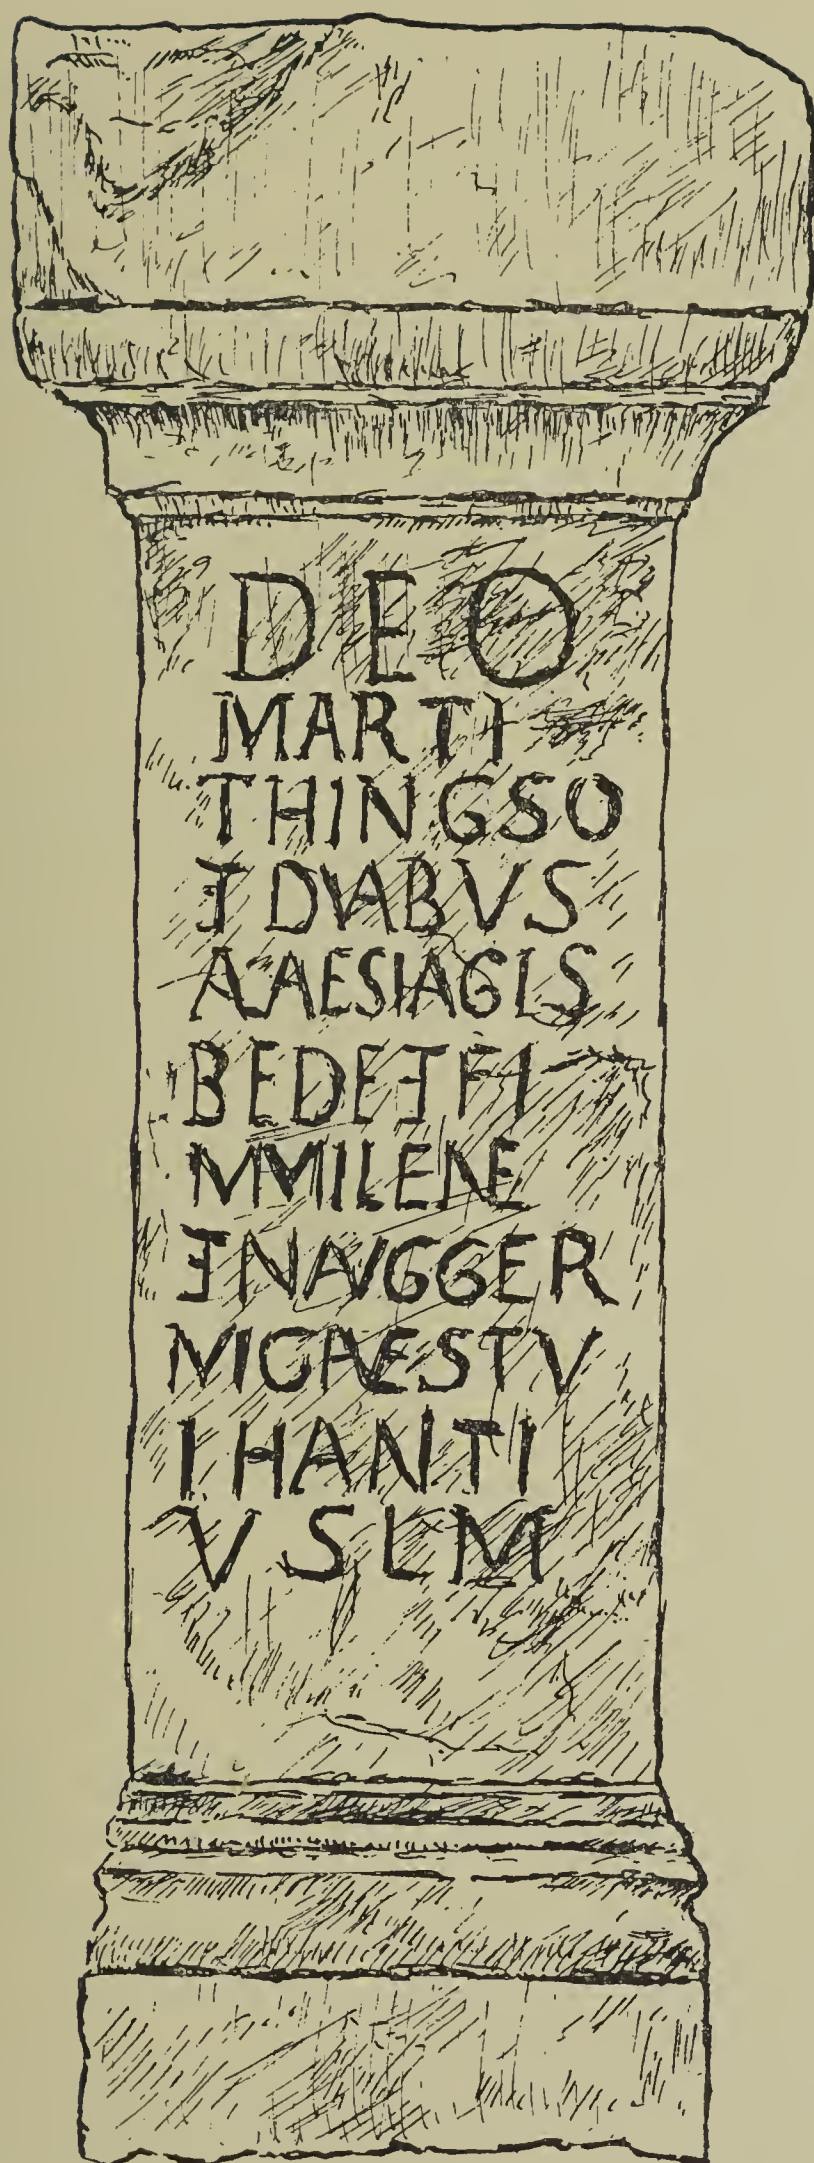 DEO
MARTI
THINGSO
ET DVABVS
ALAESIAGIS
BEDE ET FI
MMILENE
ET N AVG GER
M CIVES TV
IHANTI
V S L M